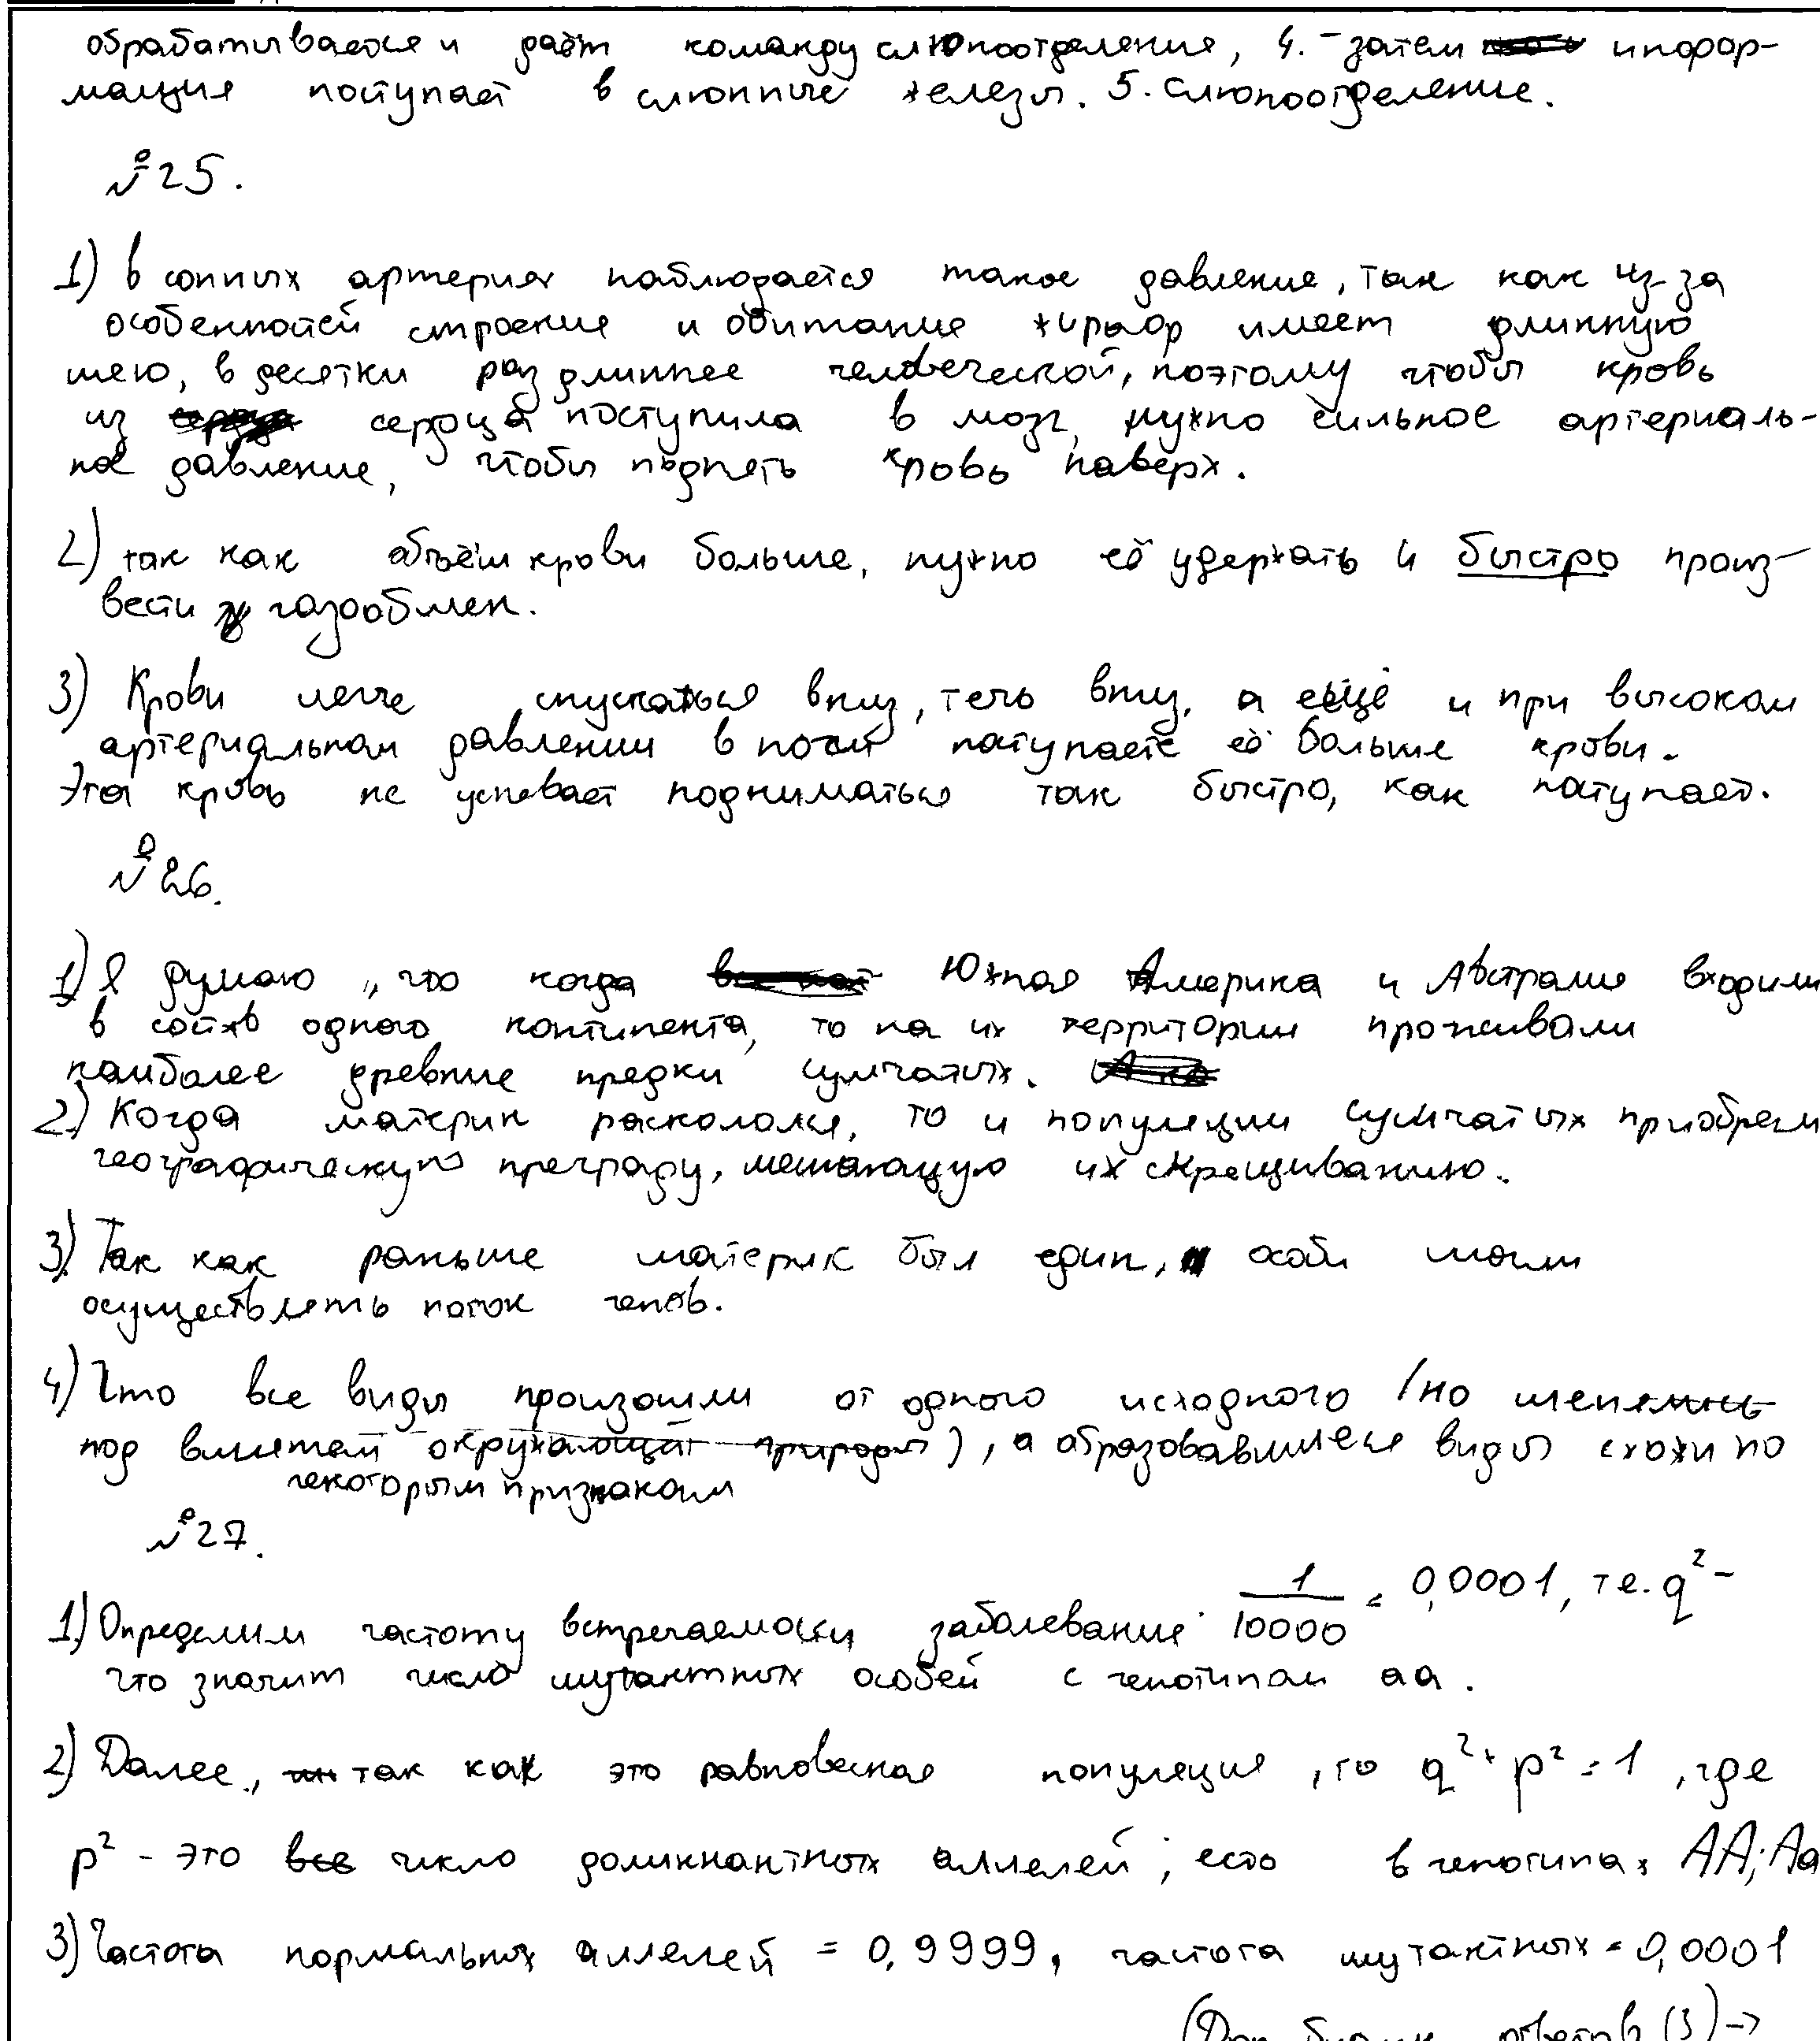 обрабатывается и даёт команду слюноотделения, 4. – затем инфор-
мация поступает в слюнные железы. 5. Слюноотделение.
№25.
1) В сонных артериях наблюдается такое давление, так как из за
особенностей строения и обитания жираф имеет длинную
шею, в десятки раз длиннее человеческой, поэтому чтобы кровь
из сердца поступила в мозг, нужно сильное артериаль-
ное давление, чтобы поднять кровь наверх.
2) так как объём крови больше, нужно её удержать и быстро произ-
вести газообмен.
3) Крови легче спускаться вниз, течь вниз, а ещё и при высоком
артериальном давлении в ноги поступает её больше крови.
Эта кровь не успевает подниматься так быстро, как поступает.
№26.
1) Я думаю, что когда Южная Америка и Австралия входили
в состав одного континента, то на их территории проживали
наиболее древние предки сумчатых.
2) Когда материк раскололся, то и популяции сумчатых приобрели
географическую преграду, мешающую их скрещиванию.
3) Так как раньше материк был един, особи могли
осуществлять поток генов.
4) Что все виды произошли от одного исходного (но менялись
под влиянием окружающей природы), а образовавшиеся виды схожи по
некоторым признакам
№27.
1) Определим частоту встречаемости заболевания: 1/10000 = 0,0001, т.е. q² –
что значит число мутантных особей с генотипом аа.
2) Далее, так как это равновесная популяция, то q² + p² = 1, где
p² – это число доминантных аллелей, есть в генотипах АА; Аа
3) Частота нормальных аллелей = 0,9999, частота мутантных = 0,0001